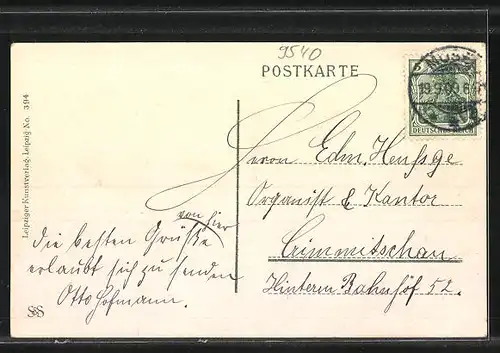 9540
POSTKARTE
19.9.09.6
DEUTSCHES REICH
Leipziger Kunstverlag-Leipzig-No. 394
Herrn Edm. Heufsge
Organist & Kantor
Crimmitschau
Hinterm Bahnhof 52.
von hier
die besten Grüße
erlaubt sich zu senden
Otto Hofmann.